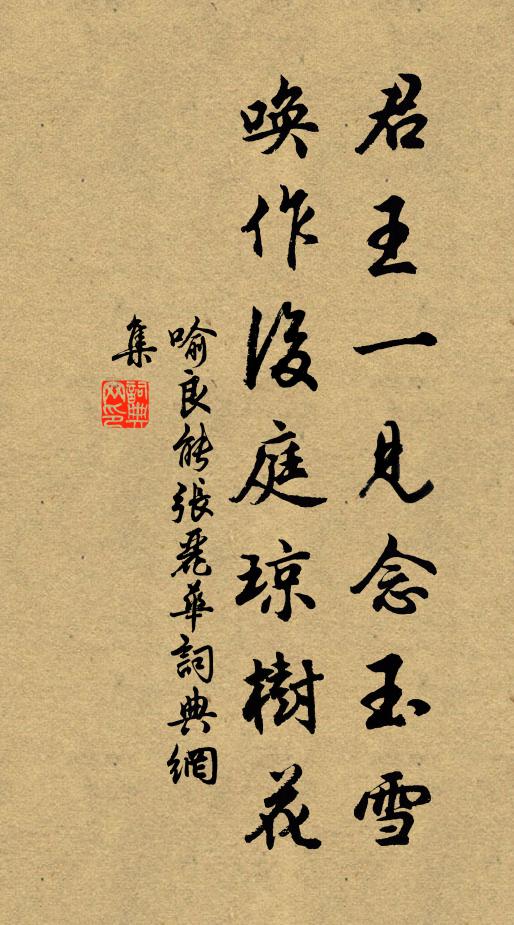 君王一見念玉雪
喚作後庭琼樹花
喻良能張麗華詞典網
集
詞典
网印